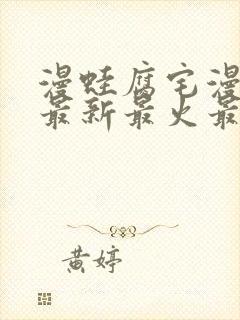 漫蛙腐宅漫
最新最火最
黄婷